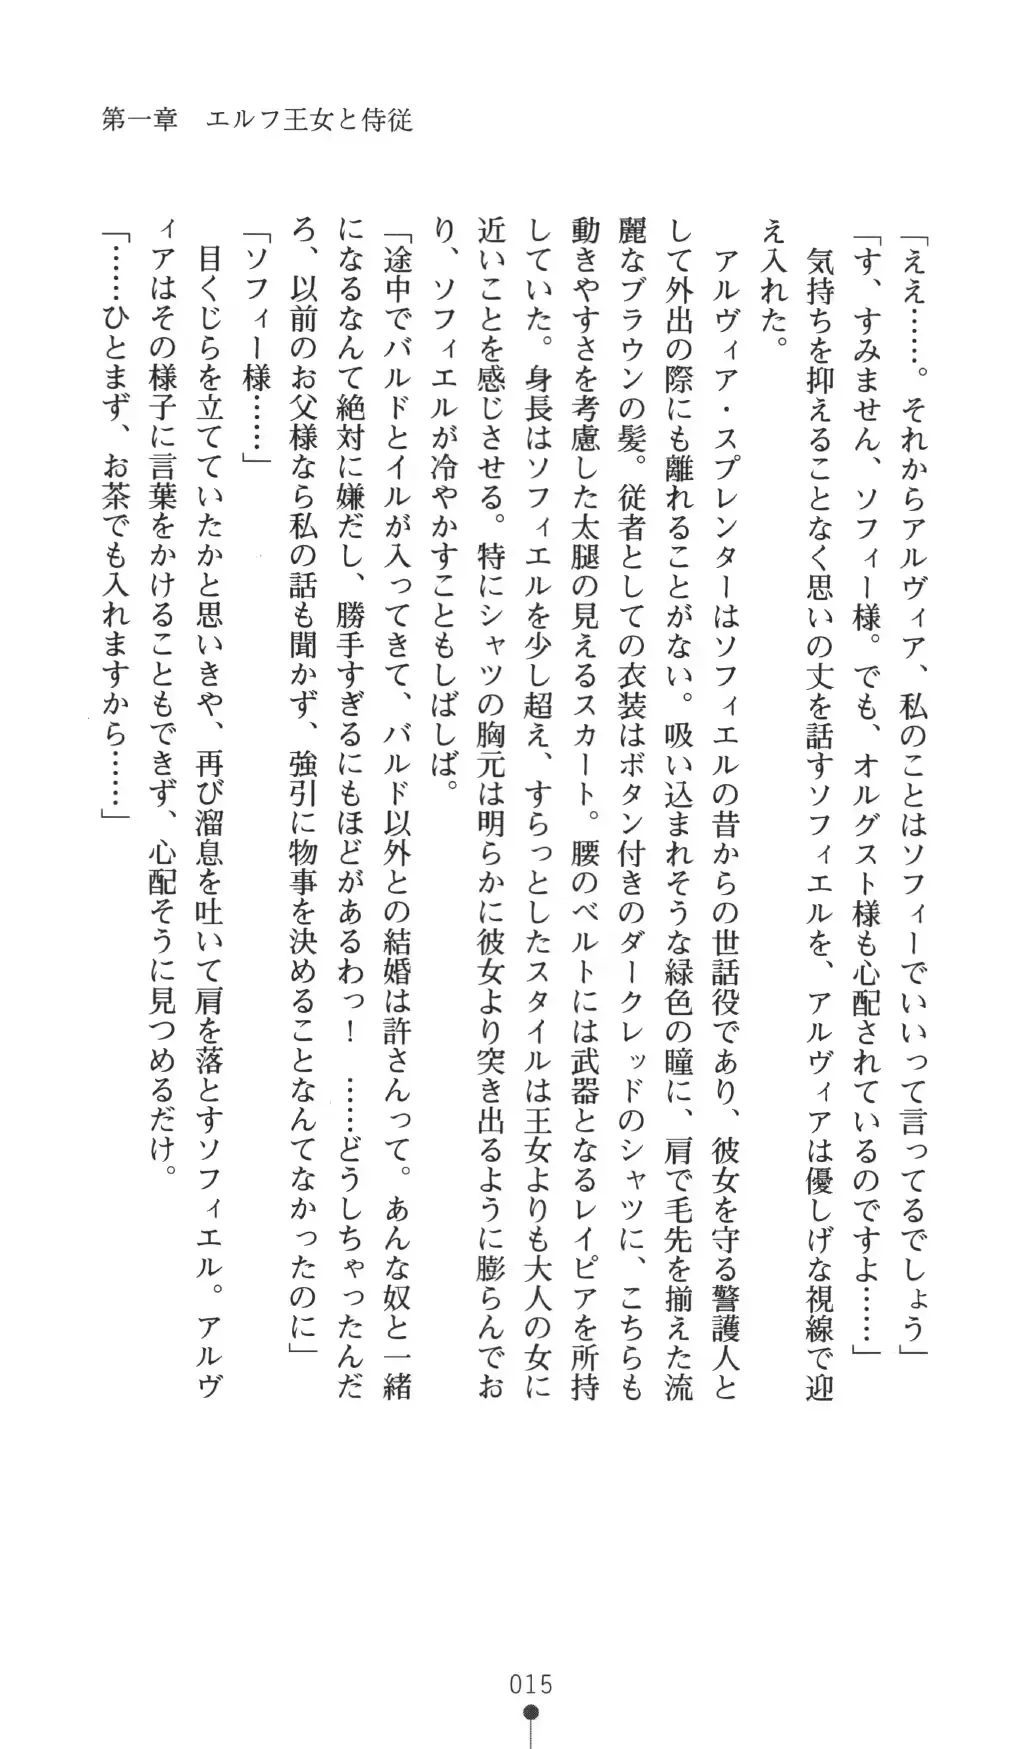 第一章　エルフ王女と侍従
「ええ……。それからアルヴィア、私のことはソフィーでいいって言ってるでしょう」
「す、すみません、ソフィー様。でも、オルグスト様も心配されているのですよ……」
　気持ちを抑えることなく思いの丈を話すソフィエルを、アルヴィアは優しげな視線で迎
え入れた。
　アルヴィア・スプレンターはソフィエルの昔からの世話役であり、彼女を守る警護人と
して外出の際にも離れることがない。吸い込まれそうな緑色の瞳に、肩で毛先を揃えた流
麗なブラウンの髪。従者としての衣装はボタン付きのダークレッドのシャツに、こちらも
動きやすさを考慮した太腿の見えるスカート。腰のベルトには武器となるレイピアを所持
していた。身長はソフィエルを少し超え、すらっとしたスタイルは王女よりも大人の女に
近いことを感じさせる。特にシャツの胸元は明らかに彼女より突き出るように膨らんでお
り、ソフィエルが冷やかすこともしばしば。
「途中でバルドとイルが入ってきて、バルド以外との結婚は許さんって。あんな奴と一緒
になるなんて絶対に嫌だし、勝手すぎるにもほどがあるわっ！　……どうしちゃったんだ
ろ、以前のお父様なら私の話も聞かず、強引に物事を決めることなんてなかったのに」
「ソフィー様……」
　目くじらを立てていたかと思いきや、再び溜息を吐いて肩を落とすソフィエル。アルヴ
ィアはその様子に言葉をかけることもできず、心配そうに見つめるだけ。
「……ひとまず、お茶でも入れますから……」
015